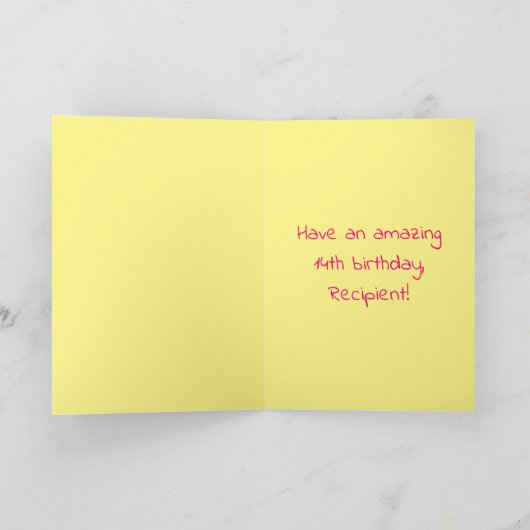 Have an amazing
14th birthday,
Recipient!